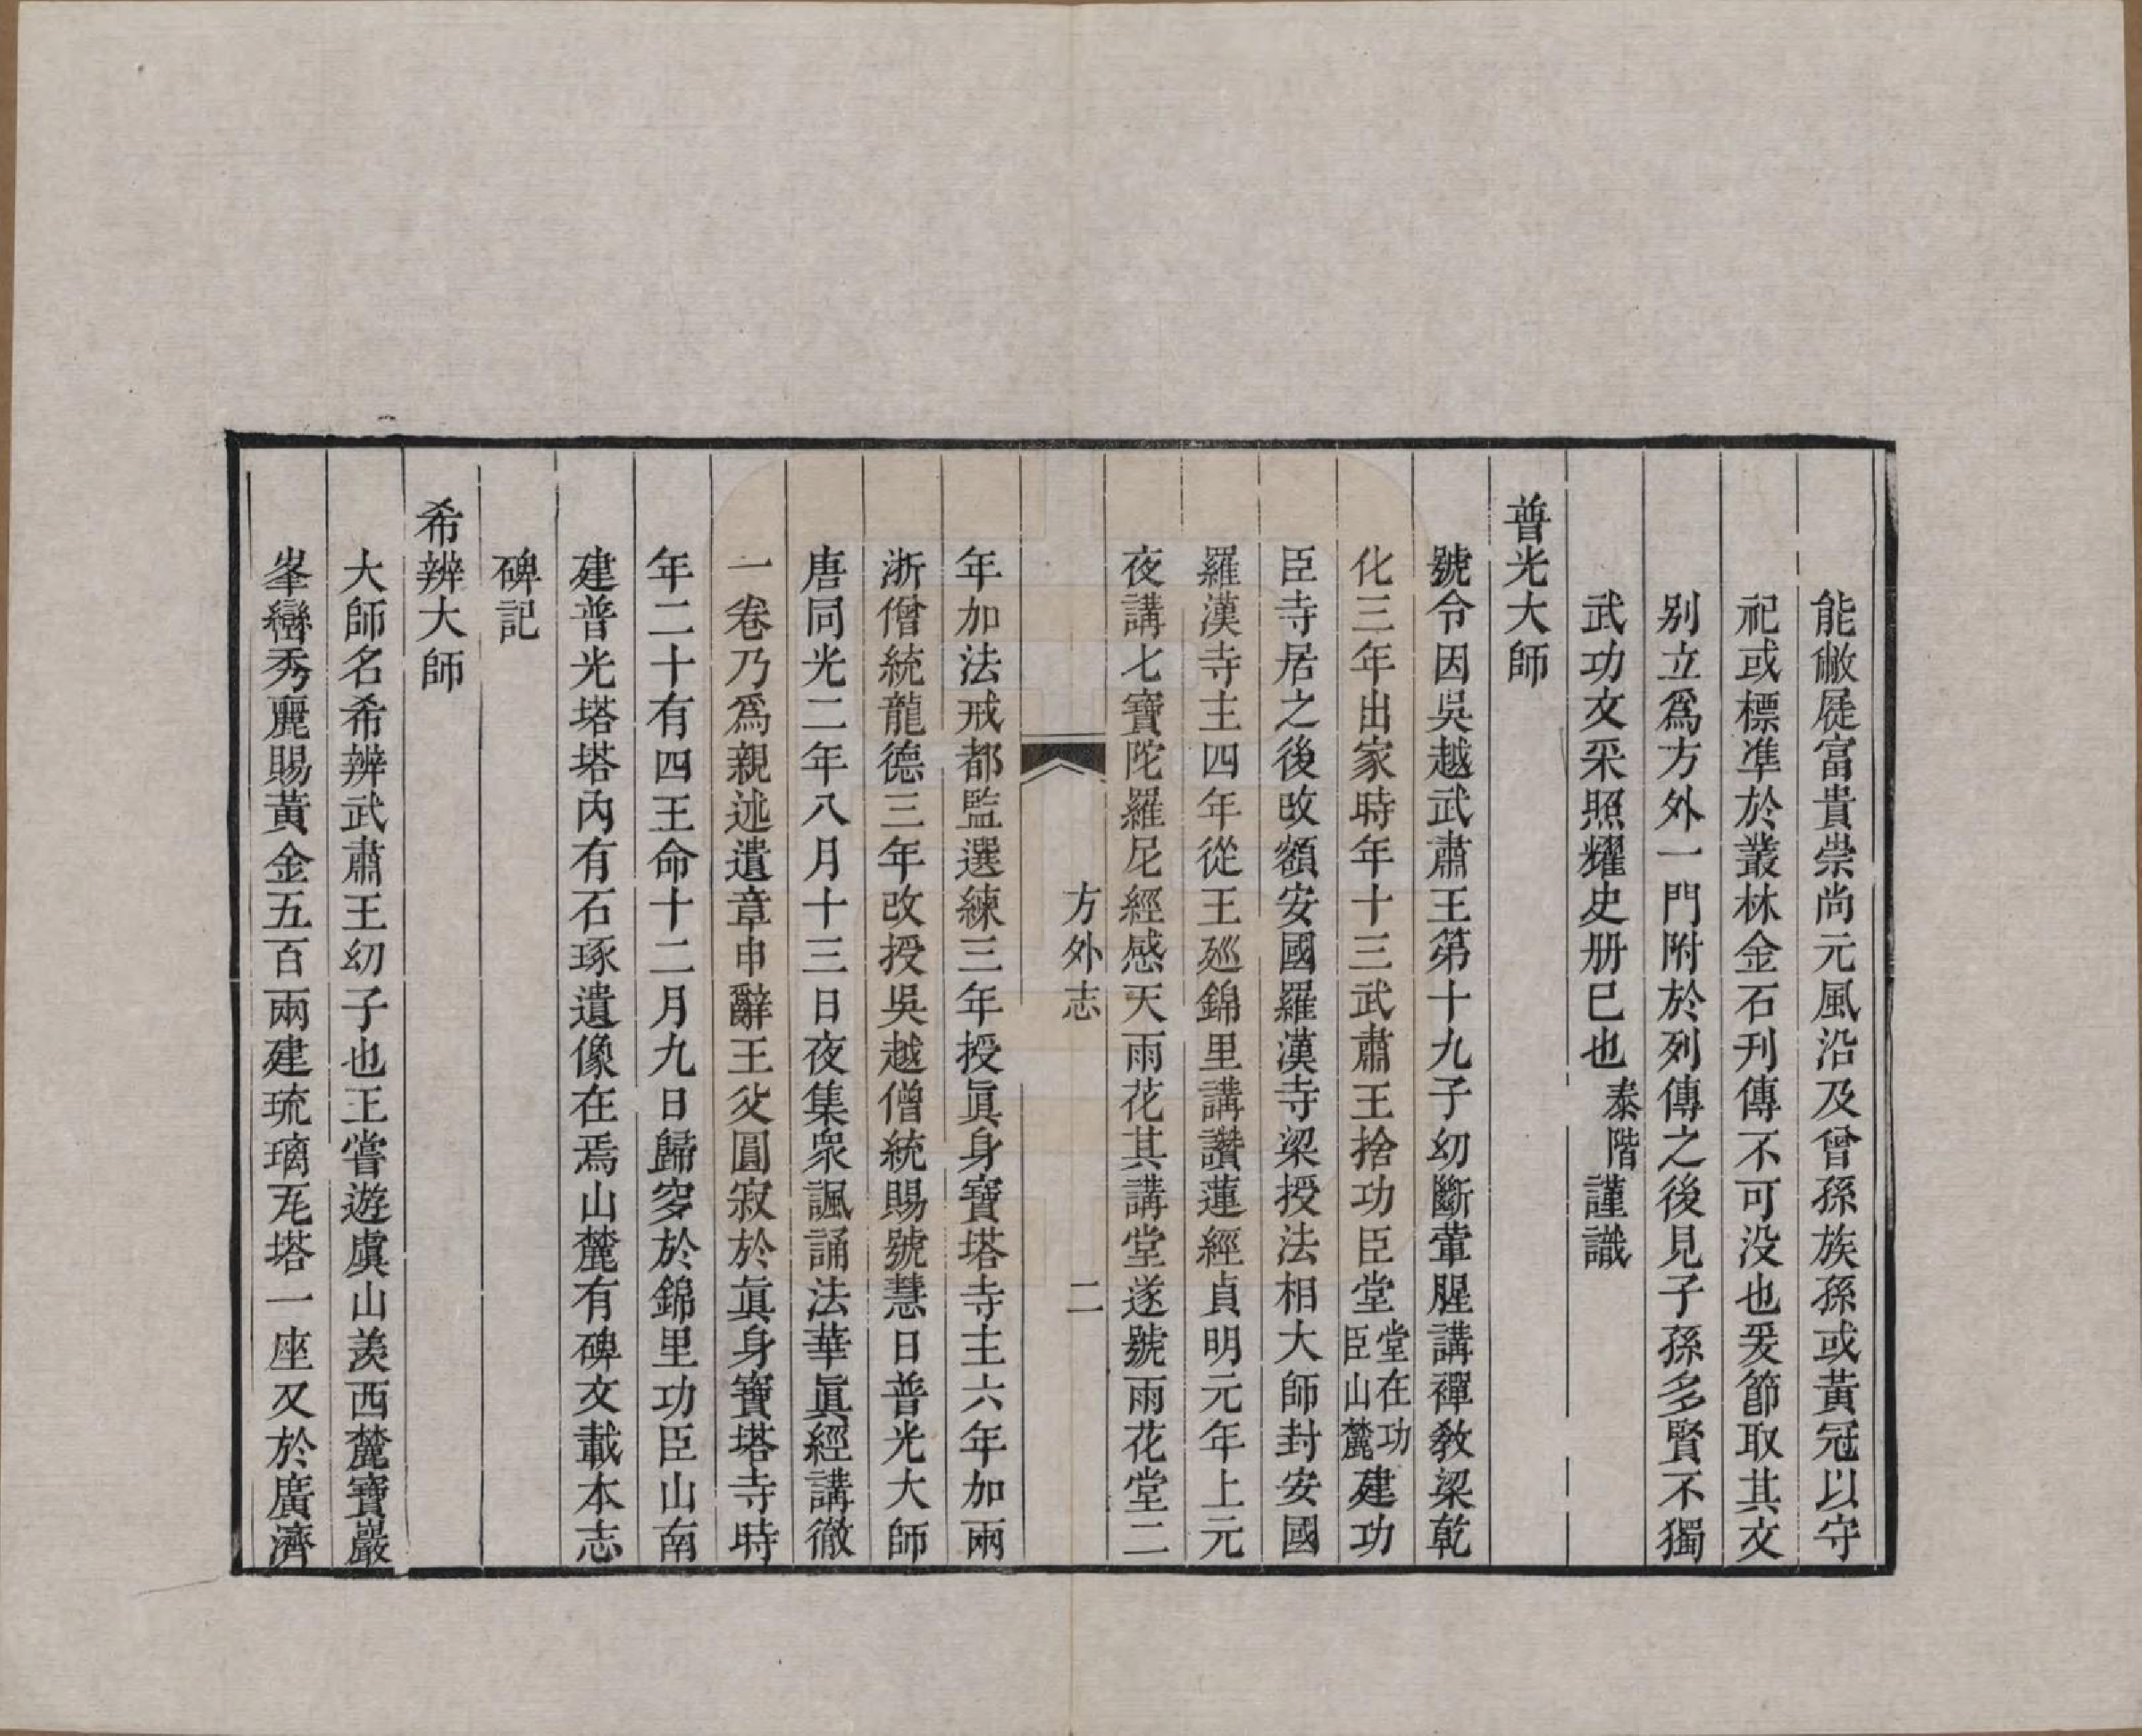 能敝屣富貴崇尚元風沿及曾孫族孫或黃冠以守
祀或標準於叢林金石刊傳不可没也爰節取其文
别立爲方外一門附於列傳之後見子孫多賢不獨
武功文采照耀史册已也泰階謹識
普光大師
號令因吳越武肅王第十九子幼斷葷腥講禪敎梁乾
化三年出家時年十三武肅王捨功臣堂堂在功臣山麓建功
臣寺居之後改額安國羅漢寺梁授法相大師封安國
羅漢寺主四年從王廵錦里講讚蓮經貞明元年上元
夜講七寶陀羅尼經感天雨花其講堂遂號雨花堂二
方外志
二
年加法戒都監選練三年授眞身寶塔寺主六年加兩
浙僧統龍德三年改授吳越僧統賜號慧日普光大師
唐同光二年八月十三日夜集衆諷誦法華眞經講徹
一卷乃爲親述遺章申辭王父圓寂於眞身寶塔寺時
年二十有四王命十二月九日歸窆於錦里功臣山南
建普光塔塔內有石琢遺像在焉山麓有碑文載本志
碑記
希辨大師
大師名希辨武肅王幼子也王嘗遊虞山羨西麓寶巖
峯巒秀麗賜黃金五百兩建琉璃瓦塔一座又於廣濟